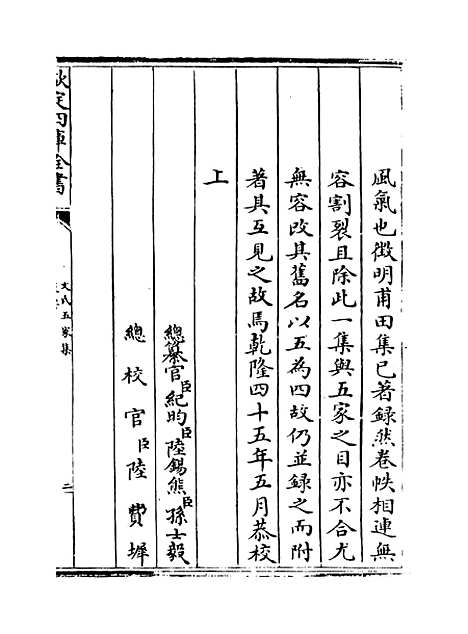 風氣也徵明甫田集已著録然卷帙相連無
容割裂且除此一集與五家之目亦不合尤
無容改其舊名以五為四故仍並録之而附
著其互見之故焉乾隆四十五年五月恭校
上
總纂官臣紀昀臣陸錫熊臣孫士毅
總校官臣陸費墀
欽定四庫全書
文氏五家集
二